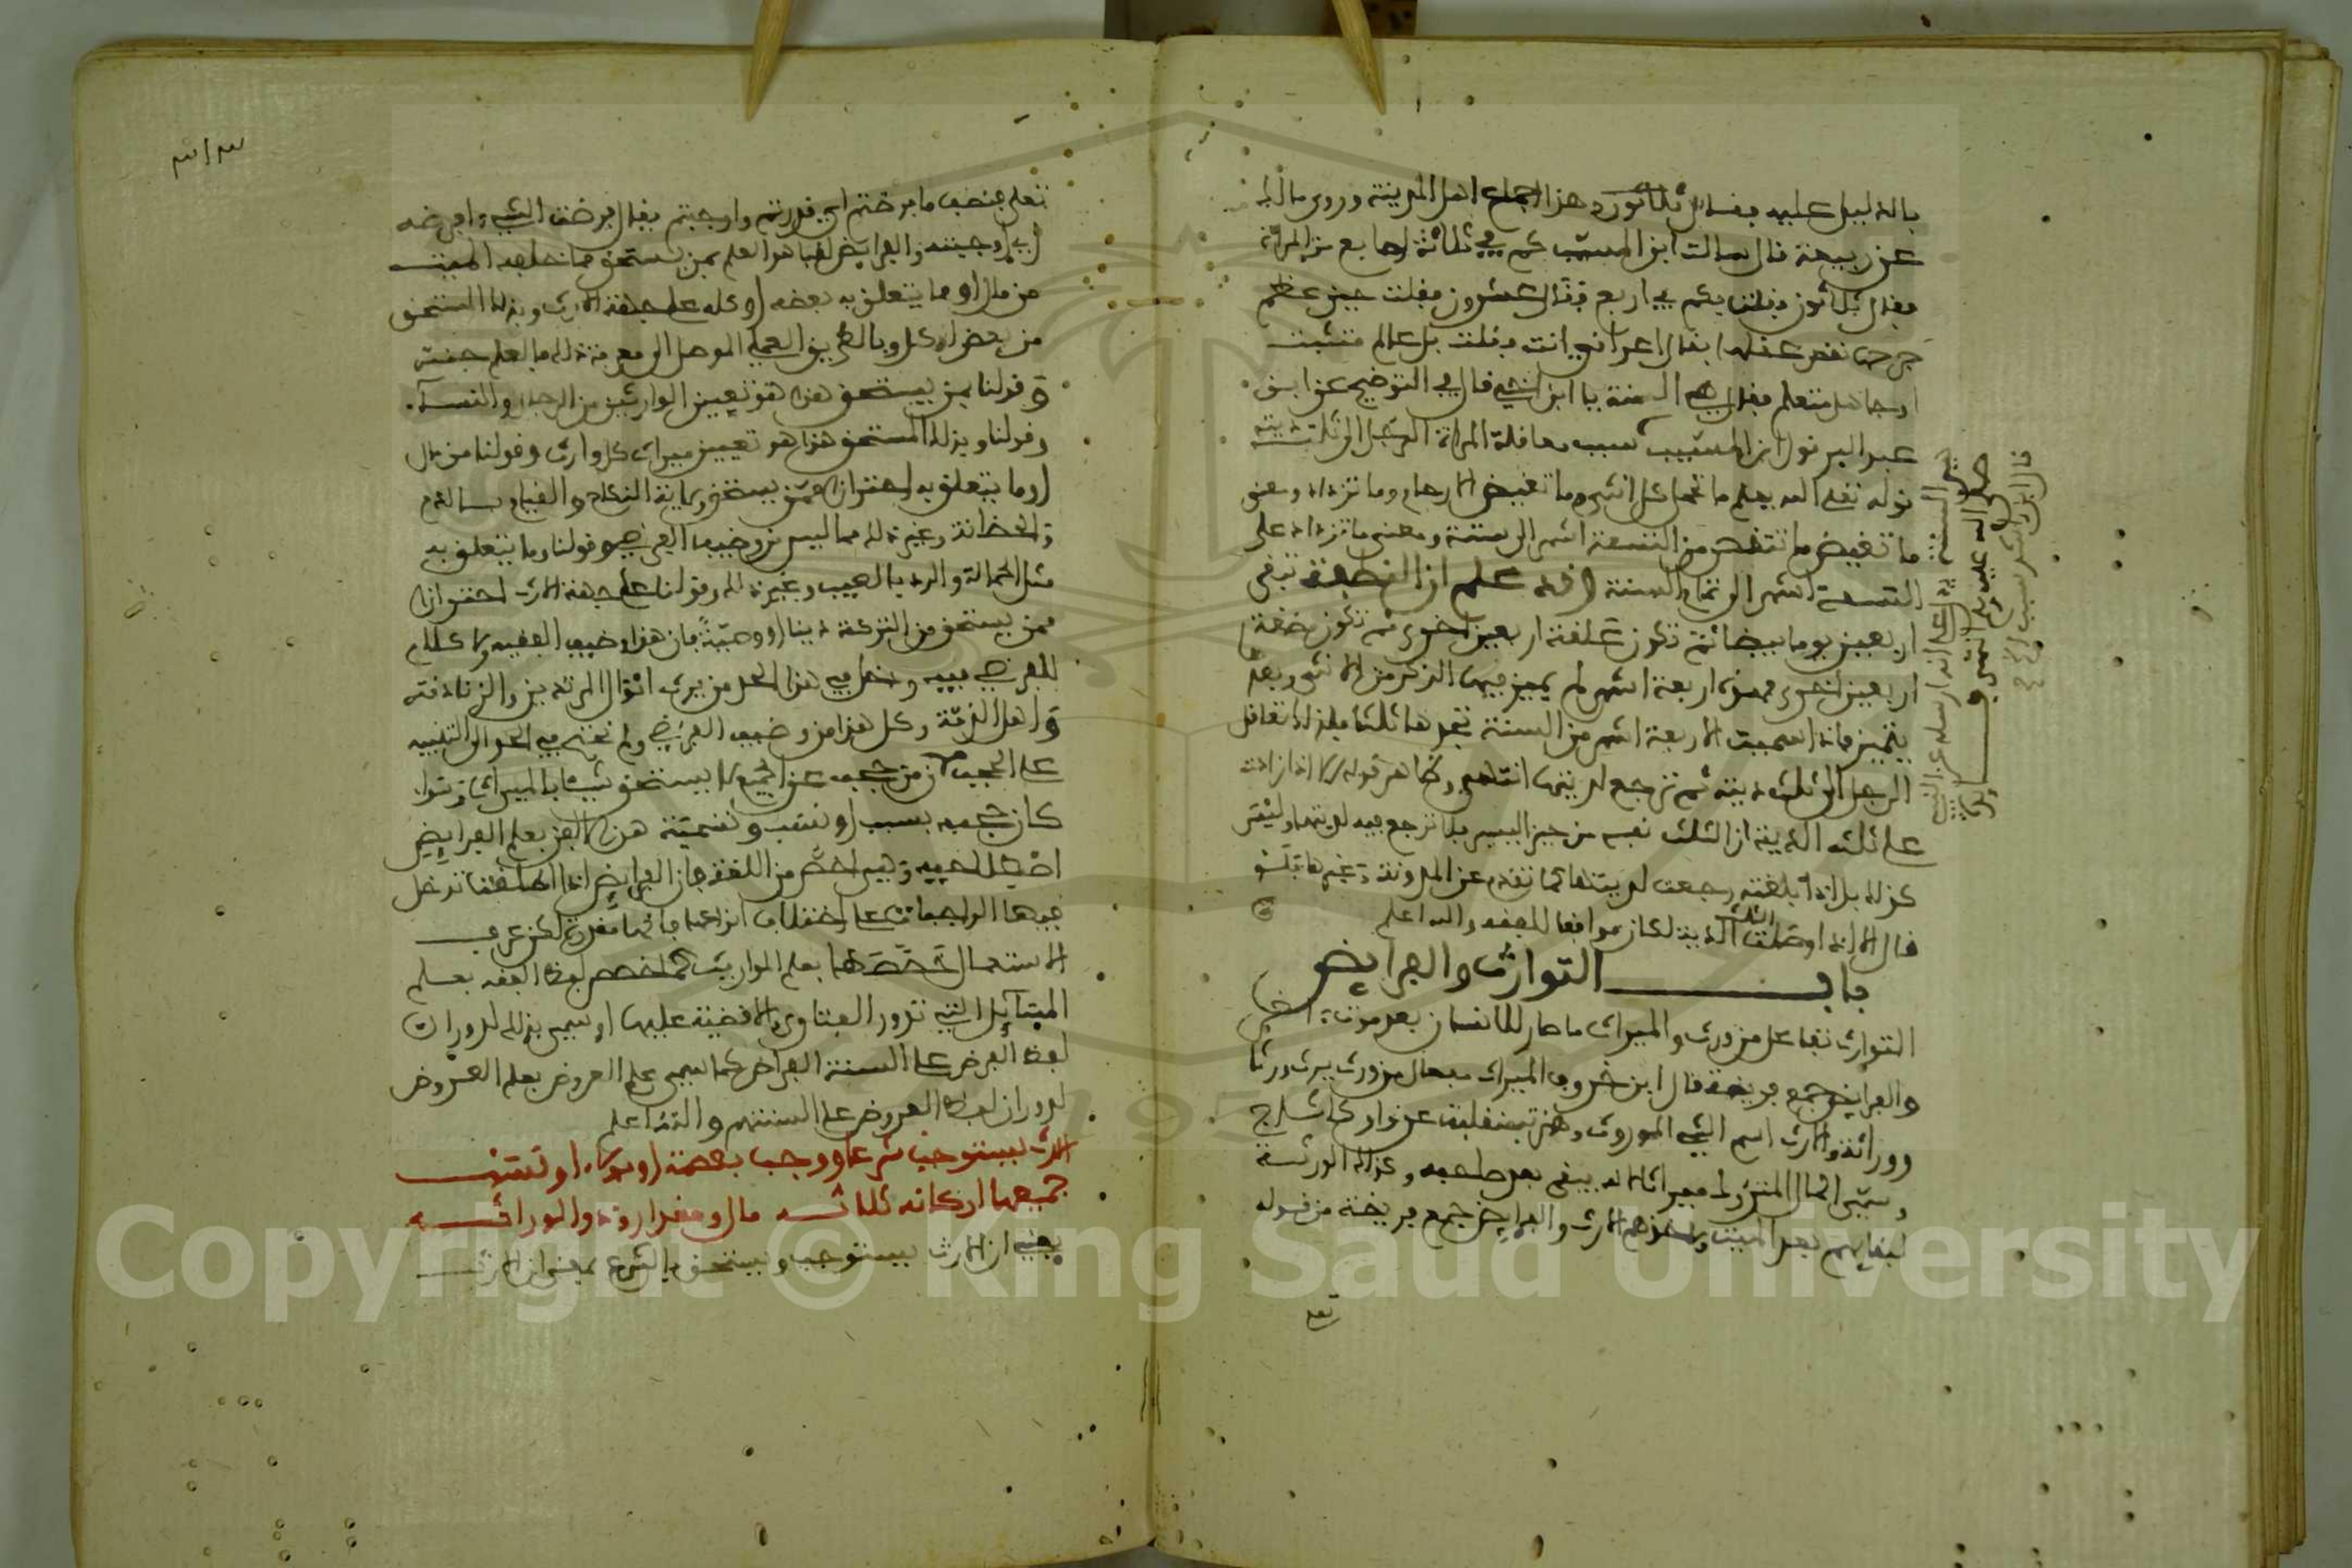 بالدليل عليه فقال ثلاثون وهذا إجماع اهل المدينة وروى مالك
عن ربيعة قال سالت ابن المسيب كم في ثلاثة اصابع من المرأة
فقال ثلاثون فقلت فكم في اربع فقال عشرون فقلت حين عظم
جرحها نقص عقلها فقال اعراقي انت فقلت بل عالم متثبت
او جاهل متعلم فقال هي السنة يا ابن اخي قال في التوضيح عن ابن
عبد البر قول ابن المسيب سبب معاقلة المرأة الرجل الى ثلث ديته
قوله تعلى الله يعلم ما تحمل كل انثى وما تغيض الارحام وما تزداد ومعنى
ما تغيض ما تنقص من التسعة اشهر الى ستة ومعنى ما تزداد على
التسعة اشهر الى تمام السنة وقد علم ان النطفة تبقى
اربعين يوما بيضا ثم تكون علقة اربعين اخرى ثم تكون مضغة
اربعين اخرى فهذه اربعة اشهر لم يميز فيها الذكر من الانثى وبعد
يتميز فاذا سميت الاربعة اشهر من السنة تجدها ثلثا فلذلك تعاقل
الرجل الى ثلث ديته ثم ترجع لديتها انتهى وظاهر قوله لا اذا زادت
على ثلثه الدية ان الثلث نفسه من حيز اليسير فلا ترجع فيه لديتها وليس
كذلك بل اذا بلغته رجعت لديتها كما تقدم عن المدونة وغيرها فلو
قال الا اذا وصلت الثلث الدية لكان موافقا للفقه والله اعلم
باب التوارث والفرايض
التوارث تفاعل من ورث والميراث ما صار للانسان بعد موت اخر
والفرايض جمع فريضة قال ابن خروف الميراث مفعال من ورث يرث ورثا
ووراثة والارث اسم الشيء الموروث وهمزته منقلبة عن واو كاشاح
وسمي المال المتروك ميراثا لانه يبقى بعد صاحبه وكذلك الورثة
لبقايهم بعد الميت واخذهم الارث والفرايض جمع فريضة من قوله
تعلى
تعلى فنصف ما فرضتم اي قدرتم واوجبتم يقال فرضت الشيء افرضه
اي اوجبته والفرايض لقبا هو العلم بمن يستحق ما خلفه الميت
من مال او ما يتعلق به بعضه او كله على جهة الارث وبذلك المستحق
من بعض او كل وبالطريق العملي الموصل الى معرفة ذلك ما لعلم جنس
وقولنا بمن يستحق هذا هو تعيين الوارثين من الرجال والنساء
وقولنا وبذلك المستحق هذا هو تعيين ميراث كل وارث وقولنا من مال
او ما يتعلق به احترازا عمن يستحق ولاية النكاح والقيام بالدم
والحضانة وغير ذلك مما ليس من وضيف الفرضي وقولنا وما يتعلق به
مثل الحمالة والرد بالعيب وغير ذلك وقولنا على جهة الارث احترازا
ممن يستحق من التركة دينا او وصية فان هذا وضيف الفقيه ولا كلام
للفرضي فيه ودخل في هذا الحد من يرث اموال المرتدين والزنادقة
واهل الذمة وكل هذا من وضيف الفرضي ولم نحتج في الحد الى التنبيه
على الحجب لان من حجب عن الجميع لا يستحق شيئا بالميراث وسواء
كان حجبه بسبب او نسب وتسمية هذا الفن بعلم الفرايض
اصطلاحية وهي اخص من اللغة فان الفرايض اذا اطلقت تدخل
فيها الواجبات على اختلاف انواعها فانها مقدرة لكن عرف
الاستعمال خصصها بعلم المواريث كما خصص لفظ الفقه بعلم
المسآيل التي تدور الفتاوى والاقضية عليها او سمي بذلك لدوران
لفظ الفرض على السنة الفراض كما سمي علم العروض بعلم العروض
لدوران لفظ العروض على السنتهم والله اعلم
الارث يستوجب شرعا ووجب بعصمة او بولاء او نسب
جميعها اركانه ثلاثه مال ومقدار وذو الوراثه
يعني ان الارث يستوجب ويستحق بالشرع بمعنى ان الارث